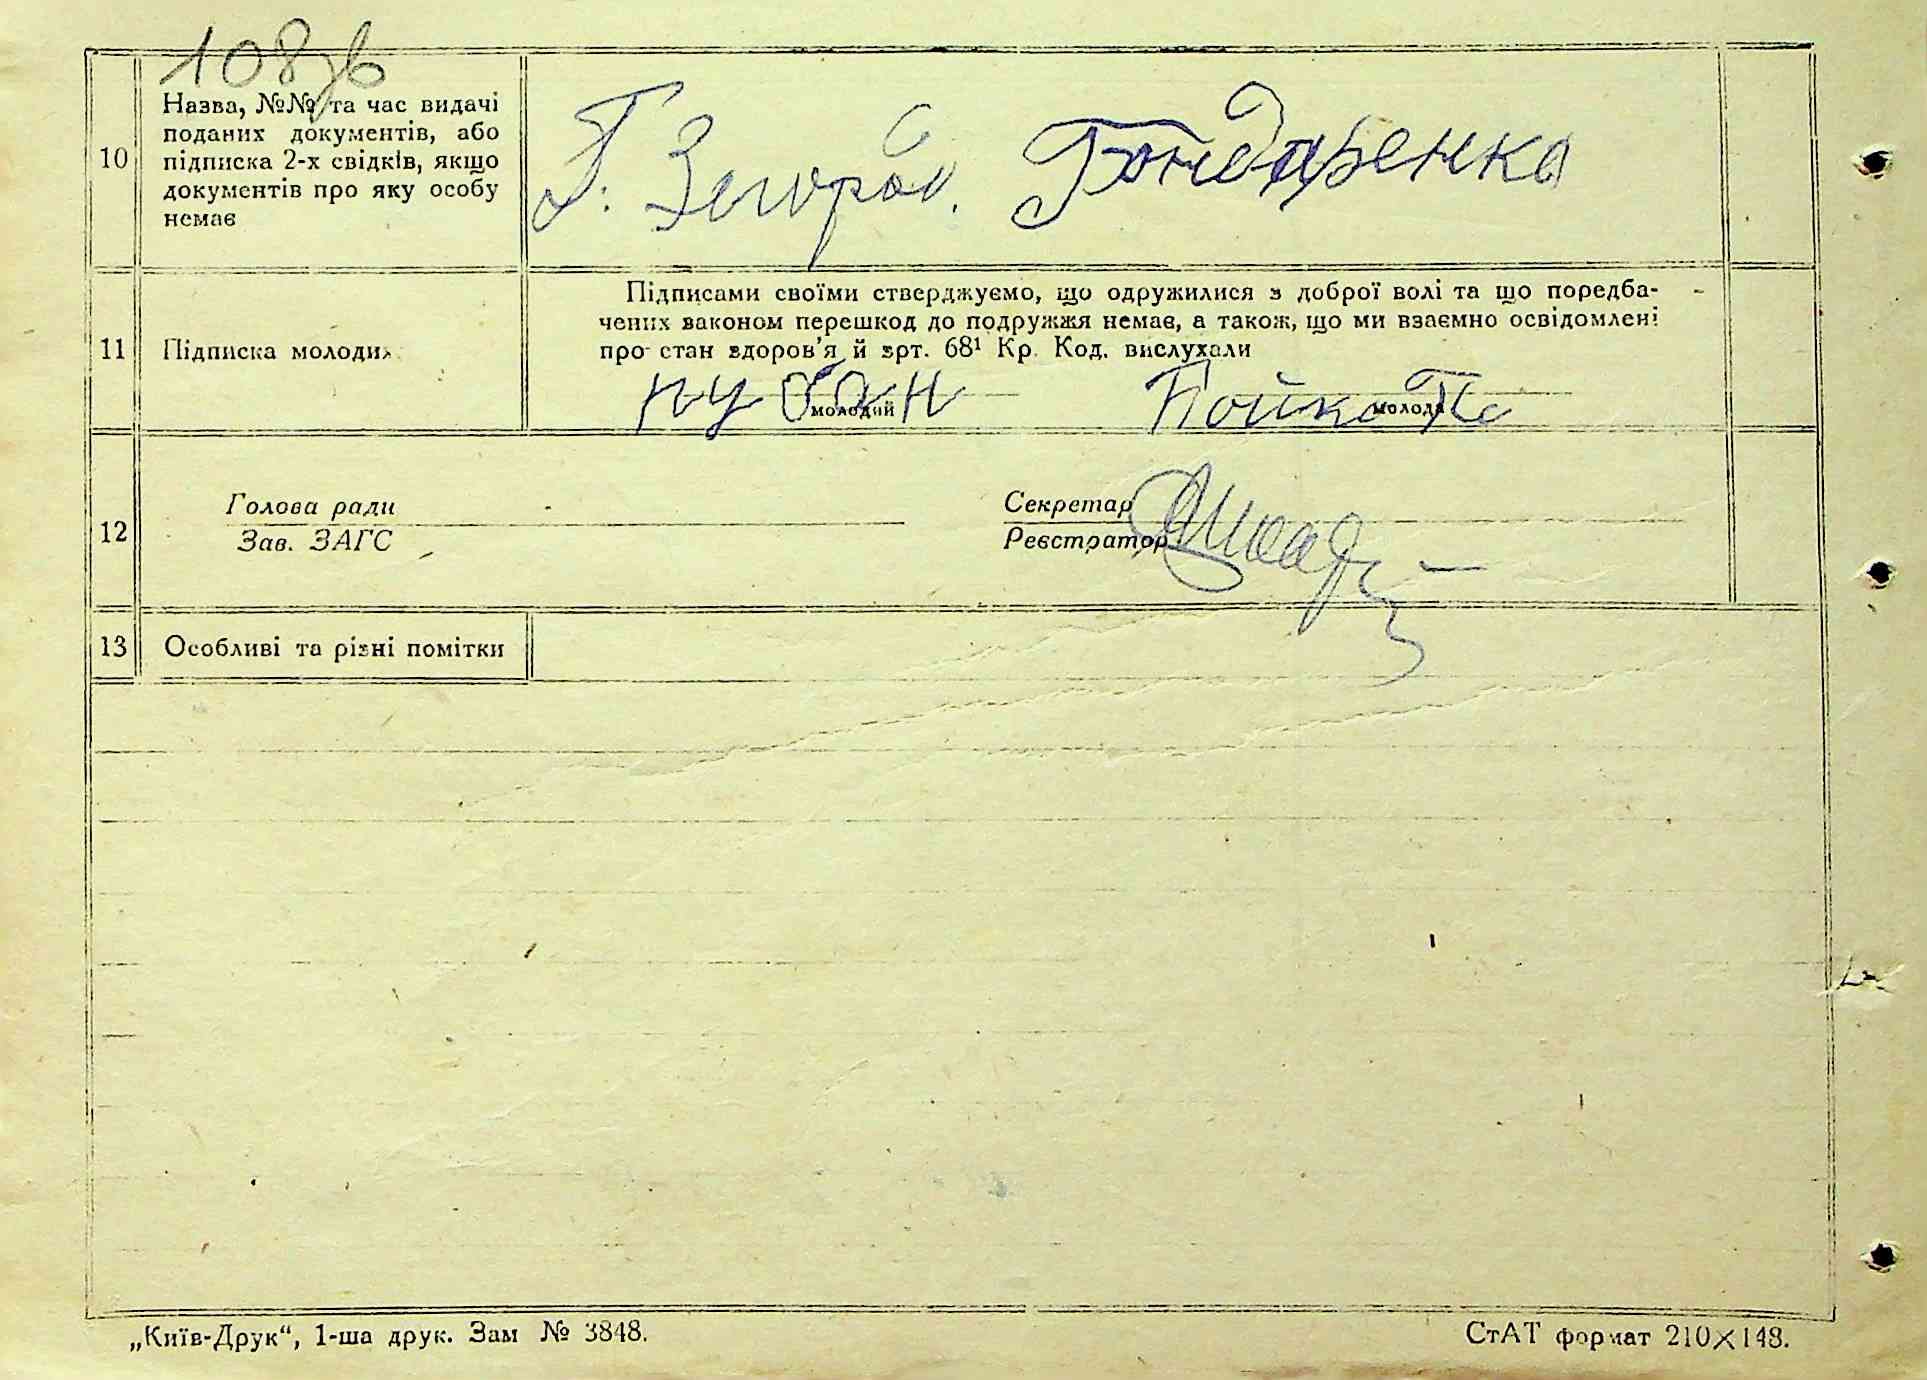 108 зв
10
Назва, №№ та час видачі
поданих документів, або
підписка 2-х свідків, якщо
документів про яку особу
немає
Бондаренко
11
Підписка молодих
Підписами своїми стверджуємо, що одружилися з доброї волі та що поредба-
чених законом перешкод до подружжя немає, а також, що ми взаємно освідомлені
про стан здоров’я й арт. 68¹ Кр. Код. вислухали
молодий
Бойко
молода
12
Голова ради
Зав. ЗАГС
Секретар
Реєстратор
13
Особливі та різні помітки
„Київ-Друк“, 1-ша друк. Зам № 3848.
СтАТ формат 210×148.